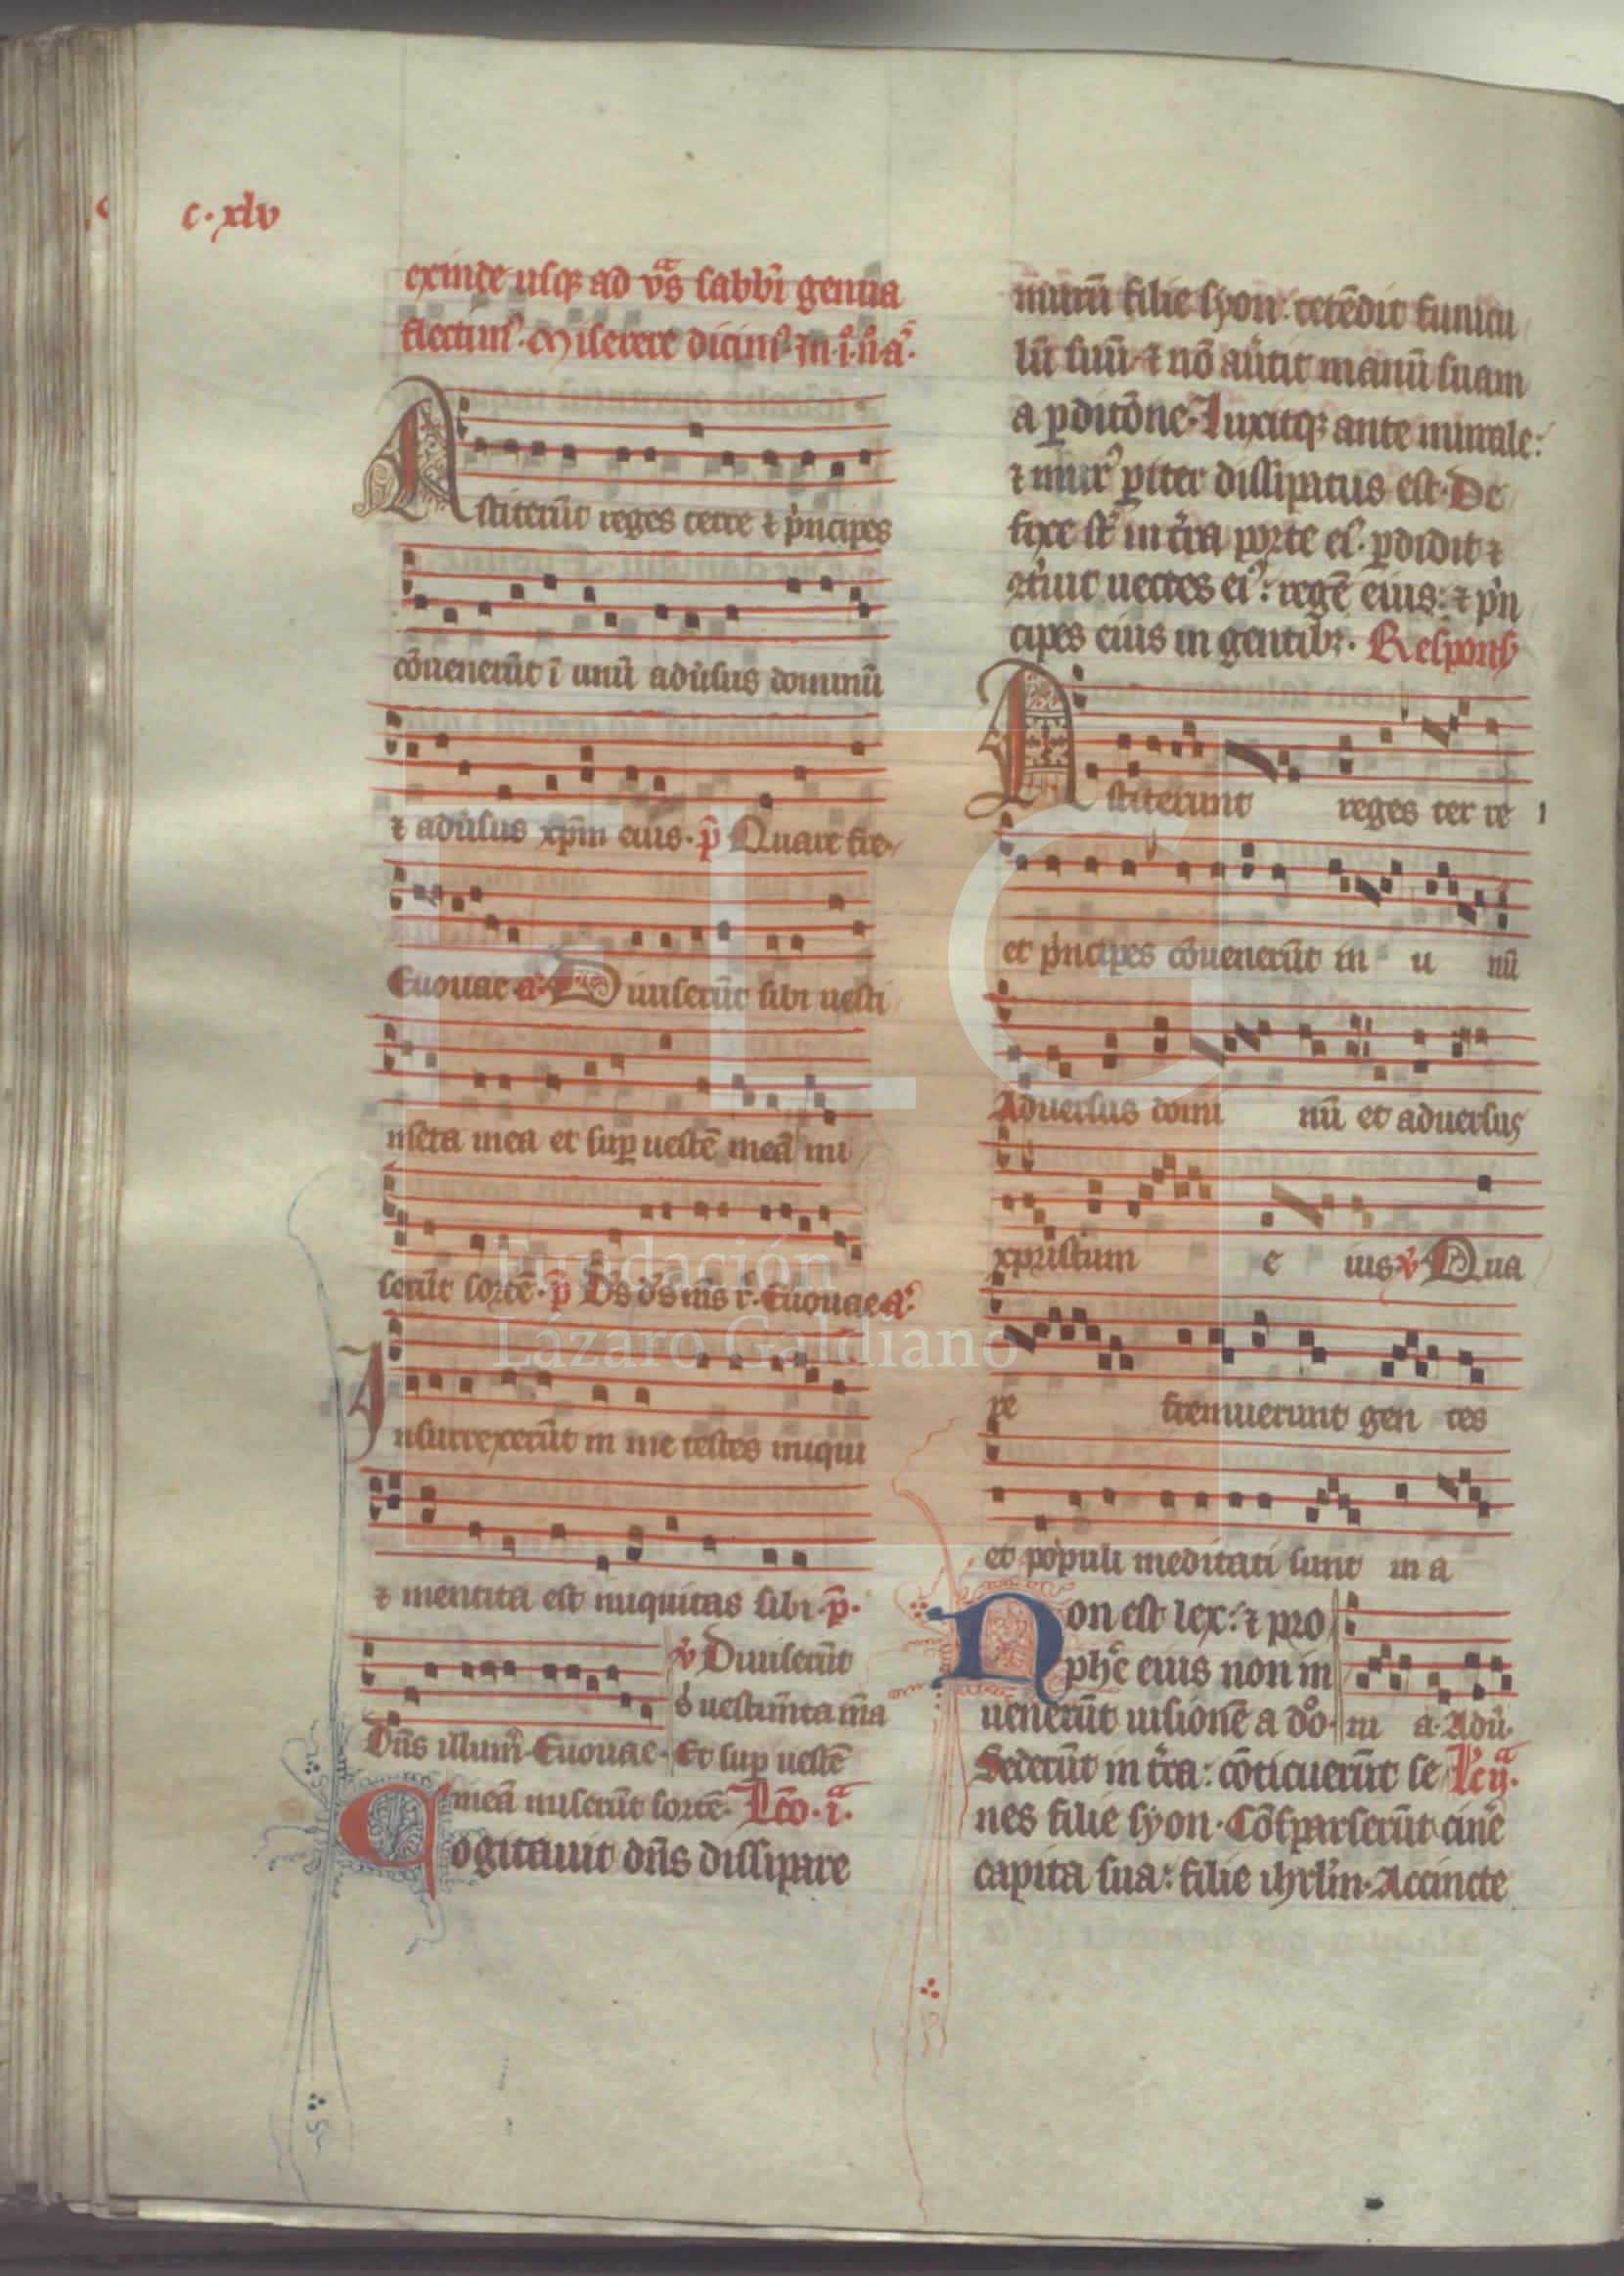 c. xlv
exinde usqꝫ ad vꝰas sabbi genua
flectimꝰ. Miserere dicimꝰ in. i. n. aᷓ.
Astiterūt reges terre ⁊ p̍ncipes
cōuenerūt ī unū adu̍sus dominū
⁊ adu̍sus xp̄m eius. p̄ Quare fre
Euouae. a. Diuiserūt sibi uesti
mēta mea et suꝑ uestē meā mi
serūt sortē. p̄ Ds ds ms r̄. Euouae a.
Insurrexerūt in me testes iniqui
⁊ mentita est iniquitas sibi. p̄.
Dn̄s illum̄. Euouae.
v̄ Diuiserūt
s̍ uestim̄ta m̄a
Et suꝑ uestē
meā miserūt sortē. Lc̄o. iᷓ.
Cogitauit dn̄s dissipare
murū filie syon: tetēdit funicu
lū suū ⁊ nō au̍tit manū suam
a ꝑditōne. Luxitqꝫ ante murale:
⁊ murꝰ ꝑiter dissipatus est. De
fixe st̄ in t̍ra porte eiꝰ. ꝑdidit ⁊
9t̍uit uectes eiꝰ: regē eius: ⁊ p̍n
cipes eius in gentibꝫ. Respons
Astiterunt reges ter re
et p̍ncipes cōuenerūt in u nū
Aduersus domi nū et aduersus
xpristum e ius v̄ Qua
re fremuerunt gen tes
et populi meditati sunt in a
Non est lex: ⁊ pro
phē eius non in
uenerūt uisionē a do.
ni a. Adu̍.
Sederūt in t̍ra: cōticuerūt se Lc̄. ijᷓ.
nes filie syon. Cōsparserūt cine
capita sua: filie ihrl̄m. Accincte
FLG
Fundación
Lázaro Galdiano